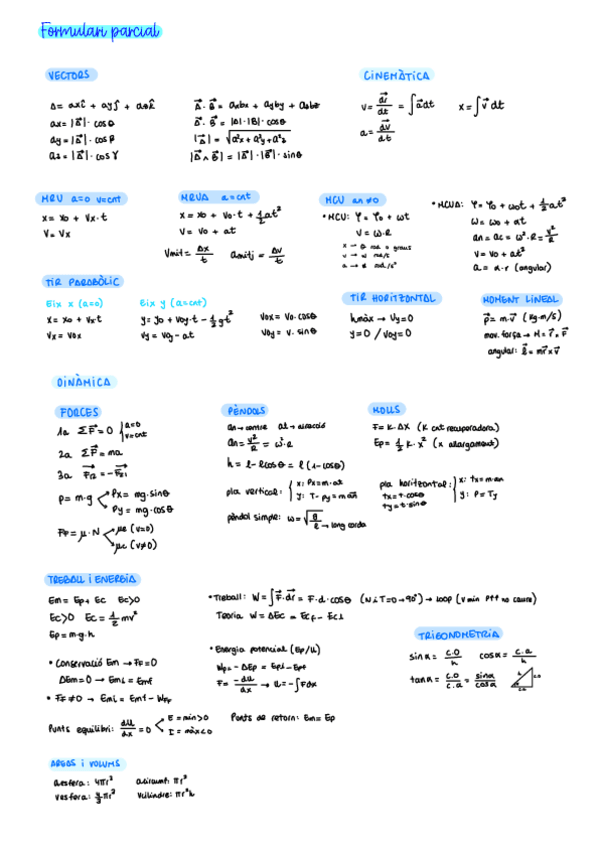 Formulari parcial
VECTORS
A = axî + ayĵ + azk̂
ax = |A⃗| · cosθ
ay = |A⃗| · cosβ
az = |A⃗| · cosγ
A⃗ · B⃗ = axbx + ayby + azbz
A⃗ · B⃗ = |A| · |B| · cosθ
|A⃗| = √(a²x + a²y + a²z)
|A⃗ ∧ B⃗| = |A⃗| · |B⃗| · sinθ
CINEMÀTICA
v = dr⃗/dt = ∫a⃗dt    x = ∫v⃗ dt
a = dv⃗/dt
MRU a=0 v=cnt
x = x₀ + Vx · t
V = Vx
MRUA a=cnt
x = x₀ + v₀ · t + 1/2 at²
V = V₀ + at
Vmit = Δx/t    amitj = ΔV/t
MCU an ≠ 0
• MCU: φ = φ₀ + ωt
V = ω · R
• MCUA: φ = φ₀ + ω₀t + 1/2 αt²
ω = ω₀ + αt
an = ac = ω² · R = v²/R
v = v₀ + at²
a = α · r (angular)
TIR PARABÒLIC
Eix x (a=0)
x = x₀ + Vx·t
Vx = V₀x
Eix y (a=cnt)
y = y₀ + V₀y · t − 1/2 gt²
Vy = V₀y − at
V₀x = V₀ · cosθ
V₀y = V · sinθ
TIR HORITZONTAL
hmàx → Vy=0
y=0 / V₀y=0
MOMENT LINEAL
p⃗ = m · v⃗ (kg·m/s)
mov. força → M = r⃗ × F⃗
angular: ℓ⃗ = mr⃗ × v⃗
DINÀMICA
FORCES
1a ΣF⃗ = 0 { a=0
v=cnt
2a ΣF⃗ = ma
3a F⃗₁₂ = −F⃗₂₁
P = m·g
Px = mg·sinθ
Py = mg·cosθ
FF = μ · N
μe (v=0)
μc (v≠0)
PÈNDOLS
an → centre at → direcció
an = v²/R = ω²·R
h = ℓ − ℓcosθ = ℓ (1 − cosθ)
pla vertical: { x: Px = m·at
y: T − Py = m·an
pèndol simple: ω = √(g/ℓ) → long corda
MOLLS
F = K · Δx (K cnt recuperadora)
Ep = 1/2 K · x² (x allargament)
pla horitzontal: { x: Tx = m·an
y: P = Ty
tx = t·cosθ
ty = t·sinθ
TREBALL I ENERGIA
Em = Ep + Ec Ec>0
Ec>0 Ec = 1/2 mv²
Ep = m·g·h
• Conservació Em → FF = 0
ΔEm = 0 → Emi = Emf
• FF ≠ 0 → Emi = Emf − WFF
Punts equilibri: dU/dx = 0
E = min > 0
I = màx < 0
• Treball: W = ∫F⃗·dr⃗ = F·d·cosθ (N i T=0 → 90°) → loop (v min pff no caure)
Teoria W = ΔEc = Ecf − Eci
• Energia potencial (Ep/U)
Wp = −ΔEp = Epi − Epf
F = −dU/dx → U = −∫Fdx
Punts de retorn: Em = Ep
TRIGONOMETRIA
sinα = C.O/h    cosα = C.A/h
tanα = C.O/C.A = sinα/cosα
AREAS I VOLUMS
Aesfera: 4πr²
Vesfera: 4/3 πr³
Acircumf: πr²
Vcilindre: πr²h